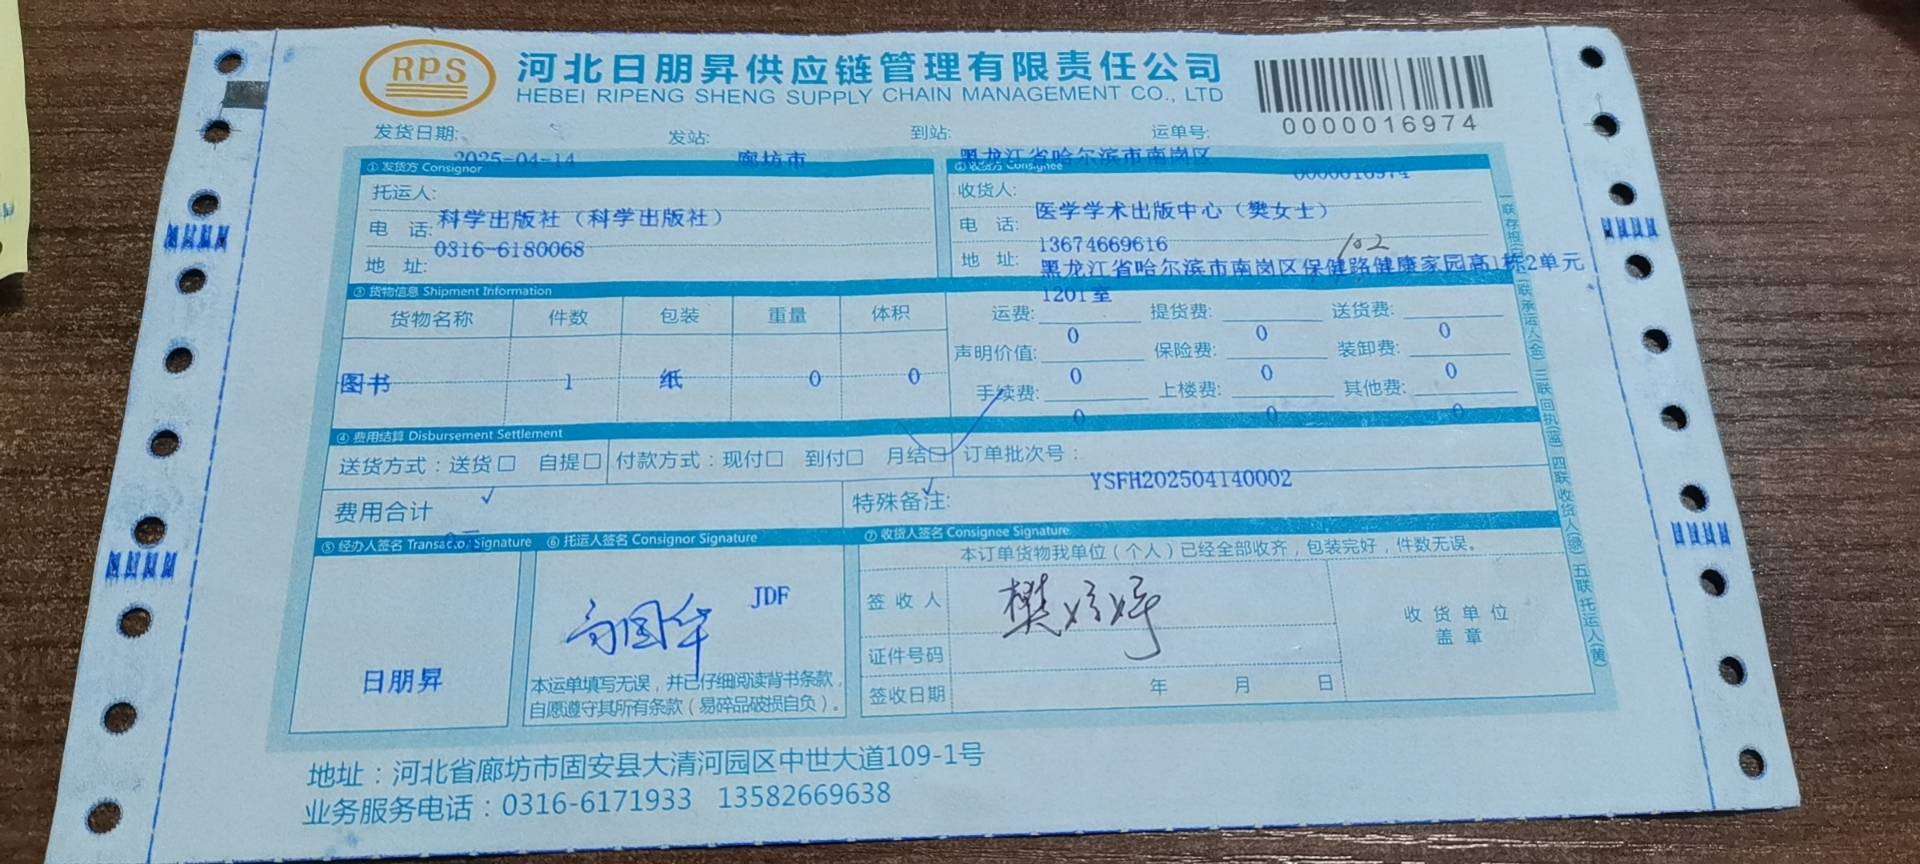 RPS
河北日朋昇供应链管理有限责任公司
HEBEI RIPENG SHENG SUPPLY CHAIN MANAGEMENT CO., LTD
0000016974
发货日期: 发站: 到站: 运单号:
2025-04-14 廊坊市 黑龙江省哈尔滨市南岗区 0000016974
①发货方 Consignor
②收货方 Consignee
托运人: 收货人:
科学出版社（科学出版社） 医学学术出版中心（樊女士）
电 话: 电 话:
0316-6180068 13674669616 102
地 址: 地 址:
黑龙江省哈尔滨市南岗区保健路健康家园高1栋2单元
1201室
③货物信息 Shipment Information
货物名称 件数 包装 重量 体积
图书 1 纸 0 0
运费: 提货费: 送货费:
0 0 0
声明价值: 保险费: 装卸费:
0 0 0
手续费: 上楼费: 其他费:
0 0 0
④费用结算 Disbursement Settlement
送货方式：送货□ 自提□ 付款方式：现付□ 到付□ 月结□ 订单批次号：
✓ ✓ YSFH202504140002
费用合计 特殊备注:
⑤经办人签名 Transactor Signature
⑥托运人签名 Consignor Signature
⑦收货人签名 Consignee Signature
本订单货物我单位（个人）已经全部收齐，包装完好，件数无误。
日朋昇
JDF
本运单填写无误，并已仔细阅读背书条款，
自愿遵守其所有条款（易碎品破损自负）。
签 收 人
证件号码
签收日期 年 月 日
收 货 单 位
盖 章
一联存根(白) 二联承运人(金) 三联回执(蓝) 四联收货人(绿) 五联托运人(黄)
地址：河北省廊坊市固安县大清河园区中世大道109-1号
业务服务电话：0316-6171933 13582669638